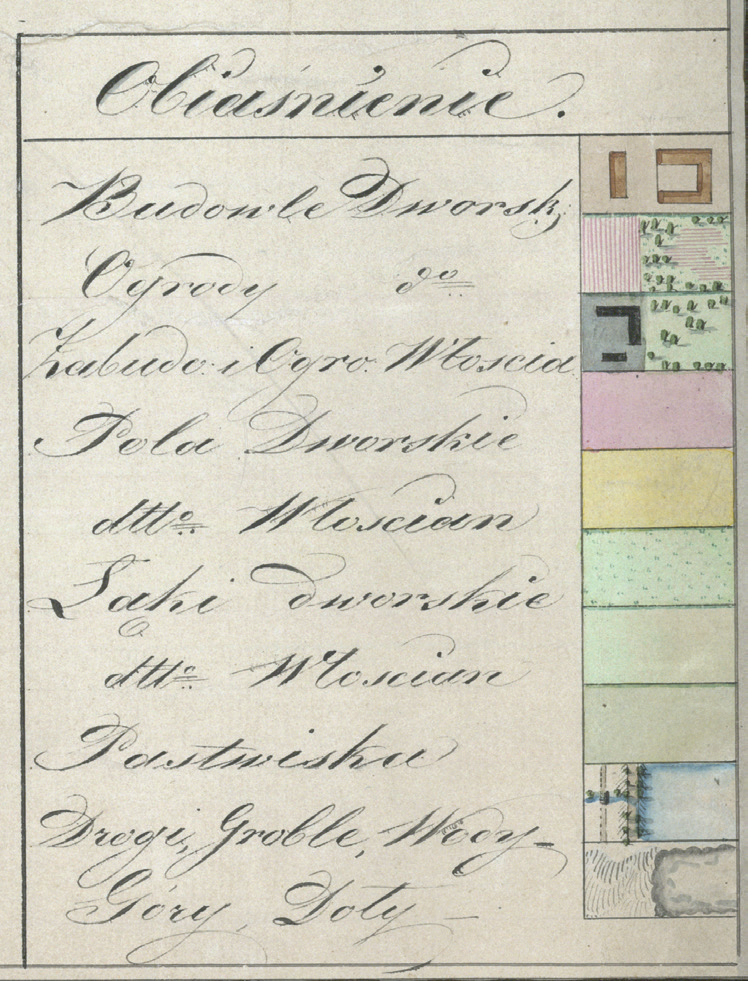 Obiaśnienie.
Budowle Dworsk:
Ogrody do
Zabudo: i Ogro: Włościa
Pola Dworskie
dtto Włoscian
Łąki dworskie
dtto Włoscian
Pastwiska
Drogi, Groble, Wody –
Góry, Doły –